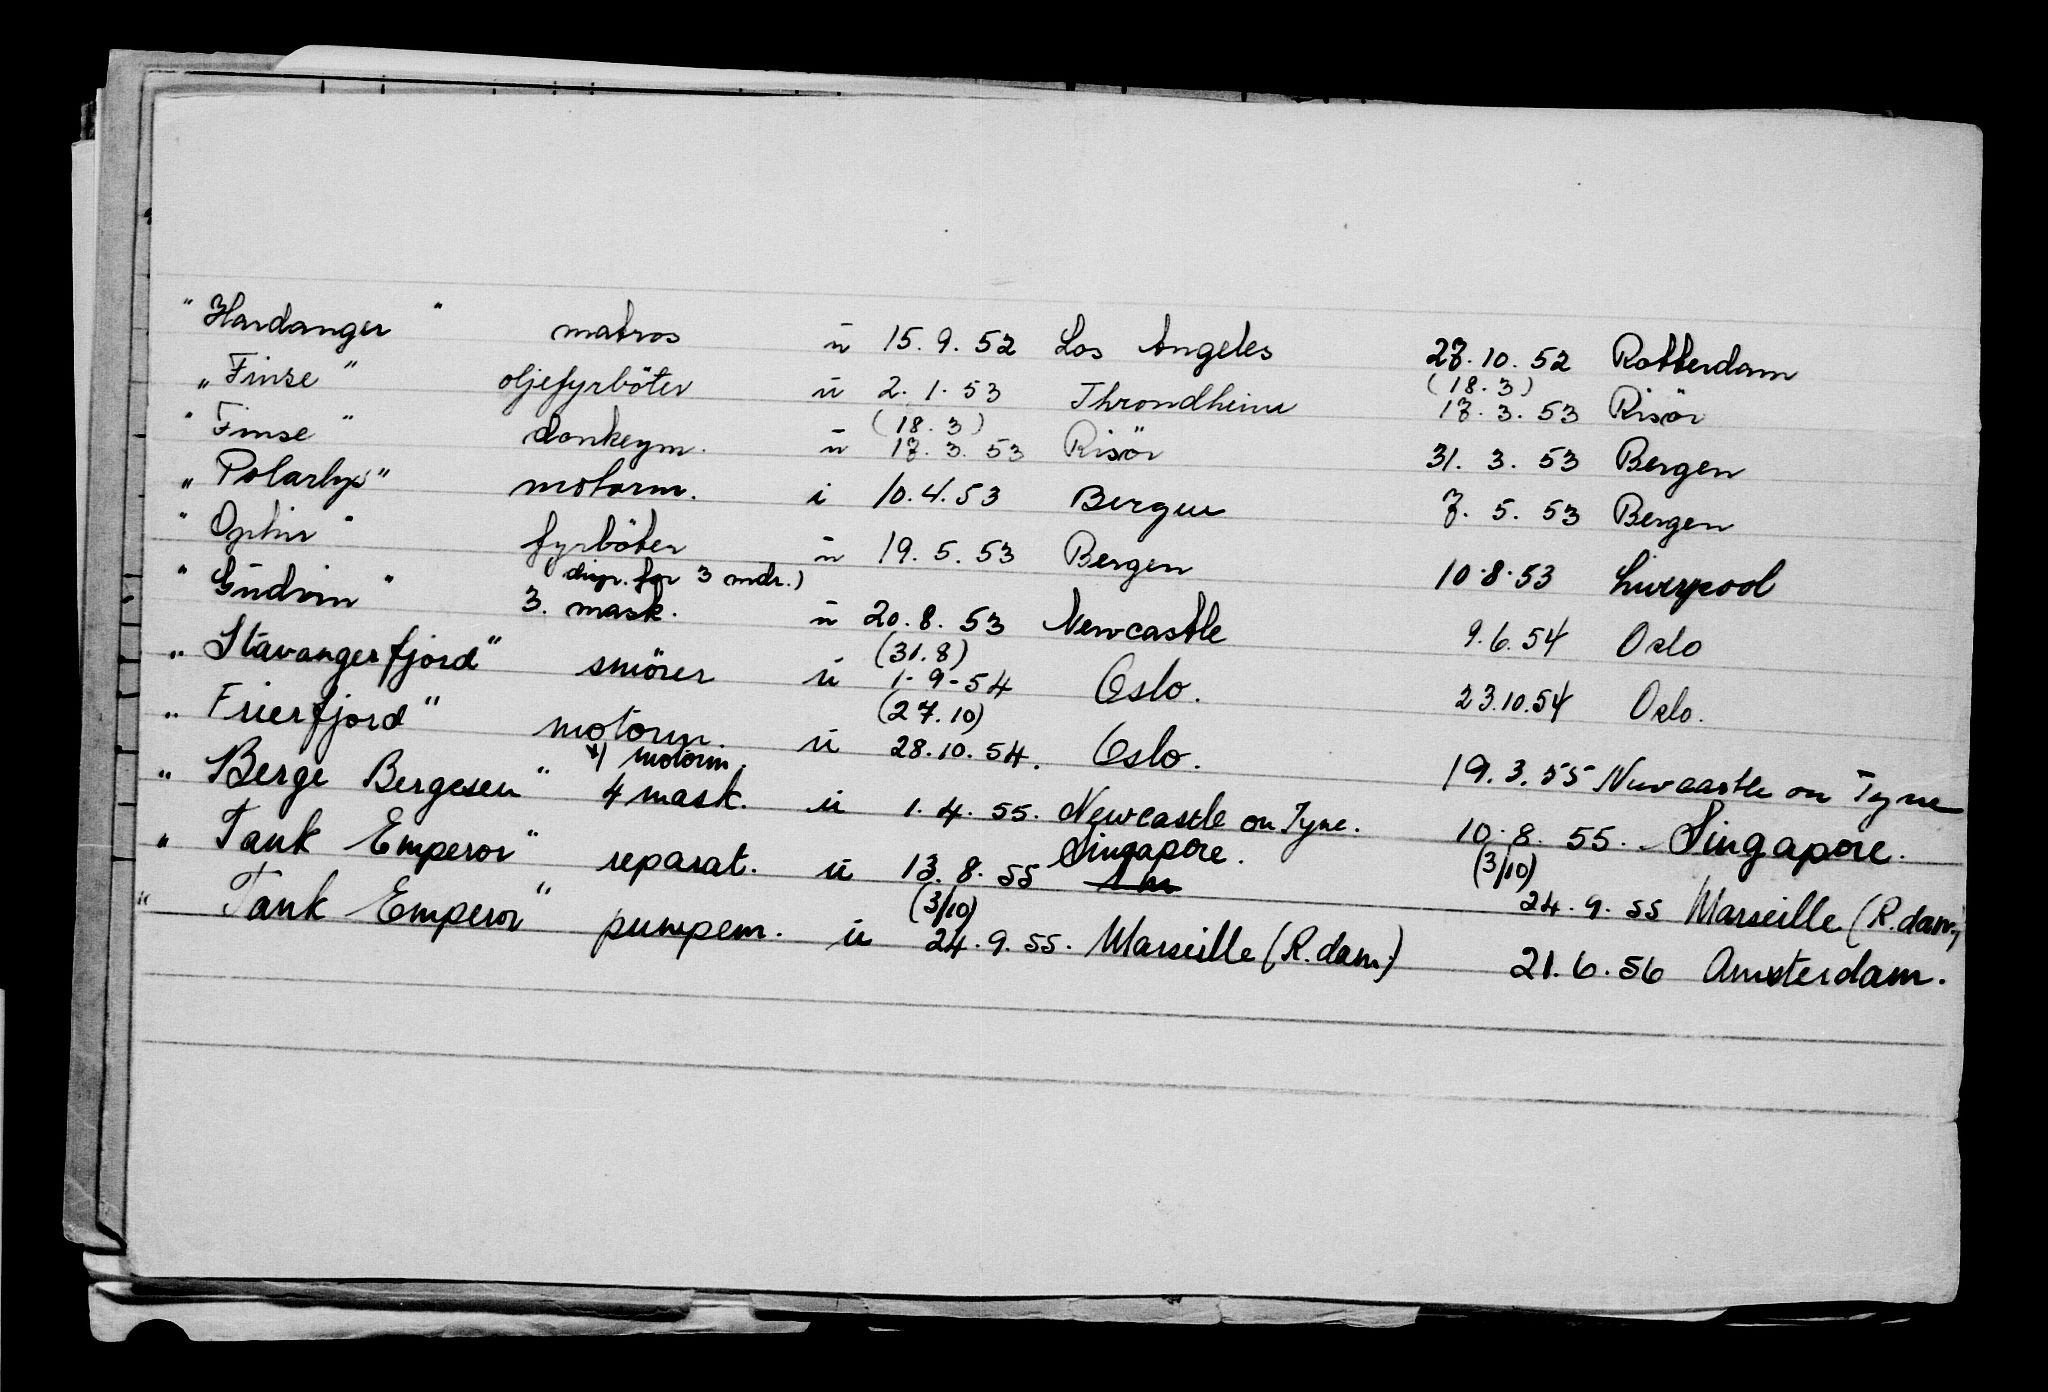 "Hardanger" matros ü 15.9.52 Los Angeles 27.10.52 Rotterdam
(18.3)
"Finse" oljefyrböter ü 2.1.53 Throndheim 17.3.53 Risör
(18.3)
"Finse" donkeym. ü 17.3.53 Risör 31.3.53 Bergen
"Polarlys" motorm. i 10.4.53 Bergen 7.5.53 Bergen
"Ophir" fyrböter ü 19.5.53 Bergen 10.8.53 Liverpool
disp. for 3 mdr.)
"Gudvin" 3. mask. ü 20.8.53 Newcastle 9.6.54 Oslo
(31.8)
"Stavangerfjord" smörer ü 1-9-54 Oslo. 23.10.54 Oslo.
(27.10)
"Frierfjord" motorm. ü 28.10.54. Oslo. 19.3.55 Newcastle on Tyne
*) motorm.
"Berge Bergesen" 4 mask. ü 1.4.55. Newcastle on Tyne. 10.8.55. Singapore.
Singapore. (3/10)
"Tank Emperor" reparat. ü 13.8.55 24.9.55 Marseille (R.dam.)
(3/10)
"Tank Emperor" pumpem. ü 24.9.55. Marseille (R.dam.) 21.6.56 Amsterdam.